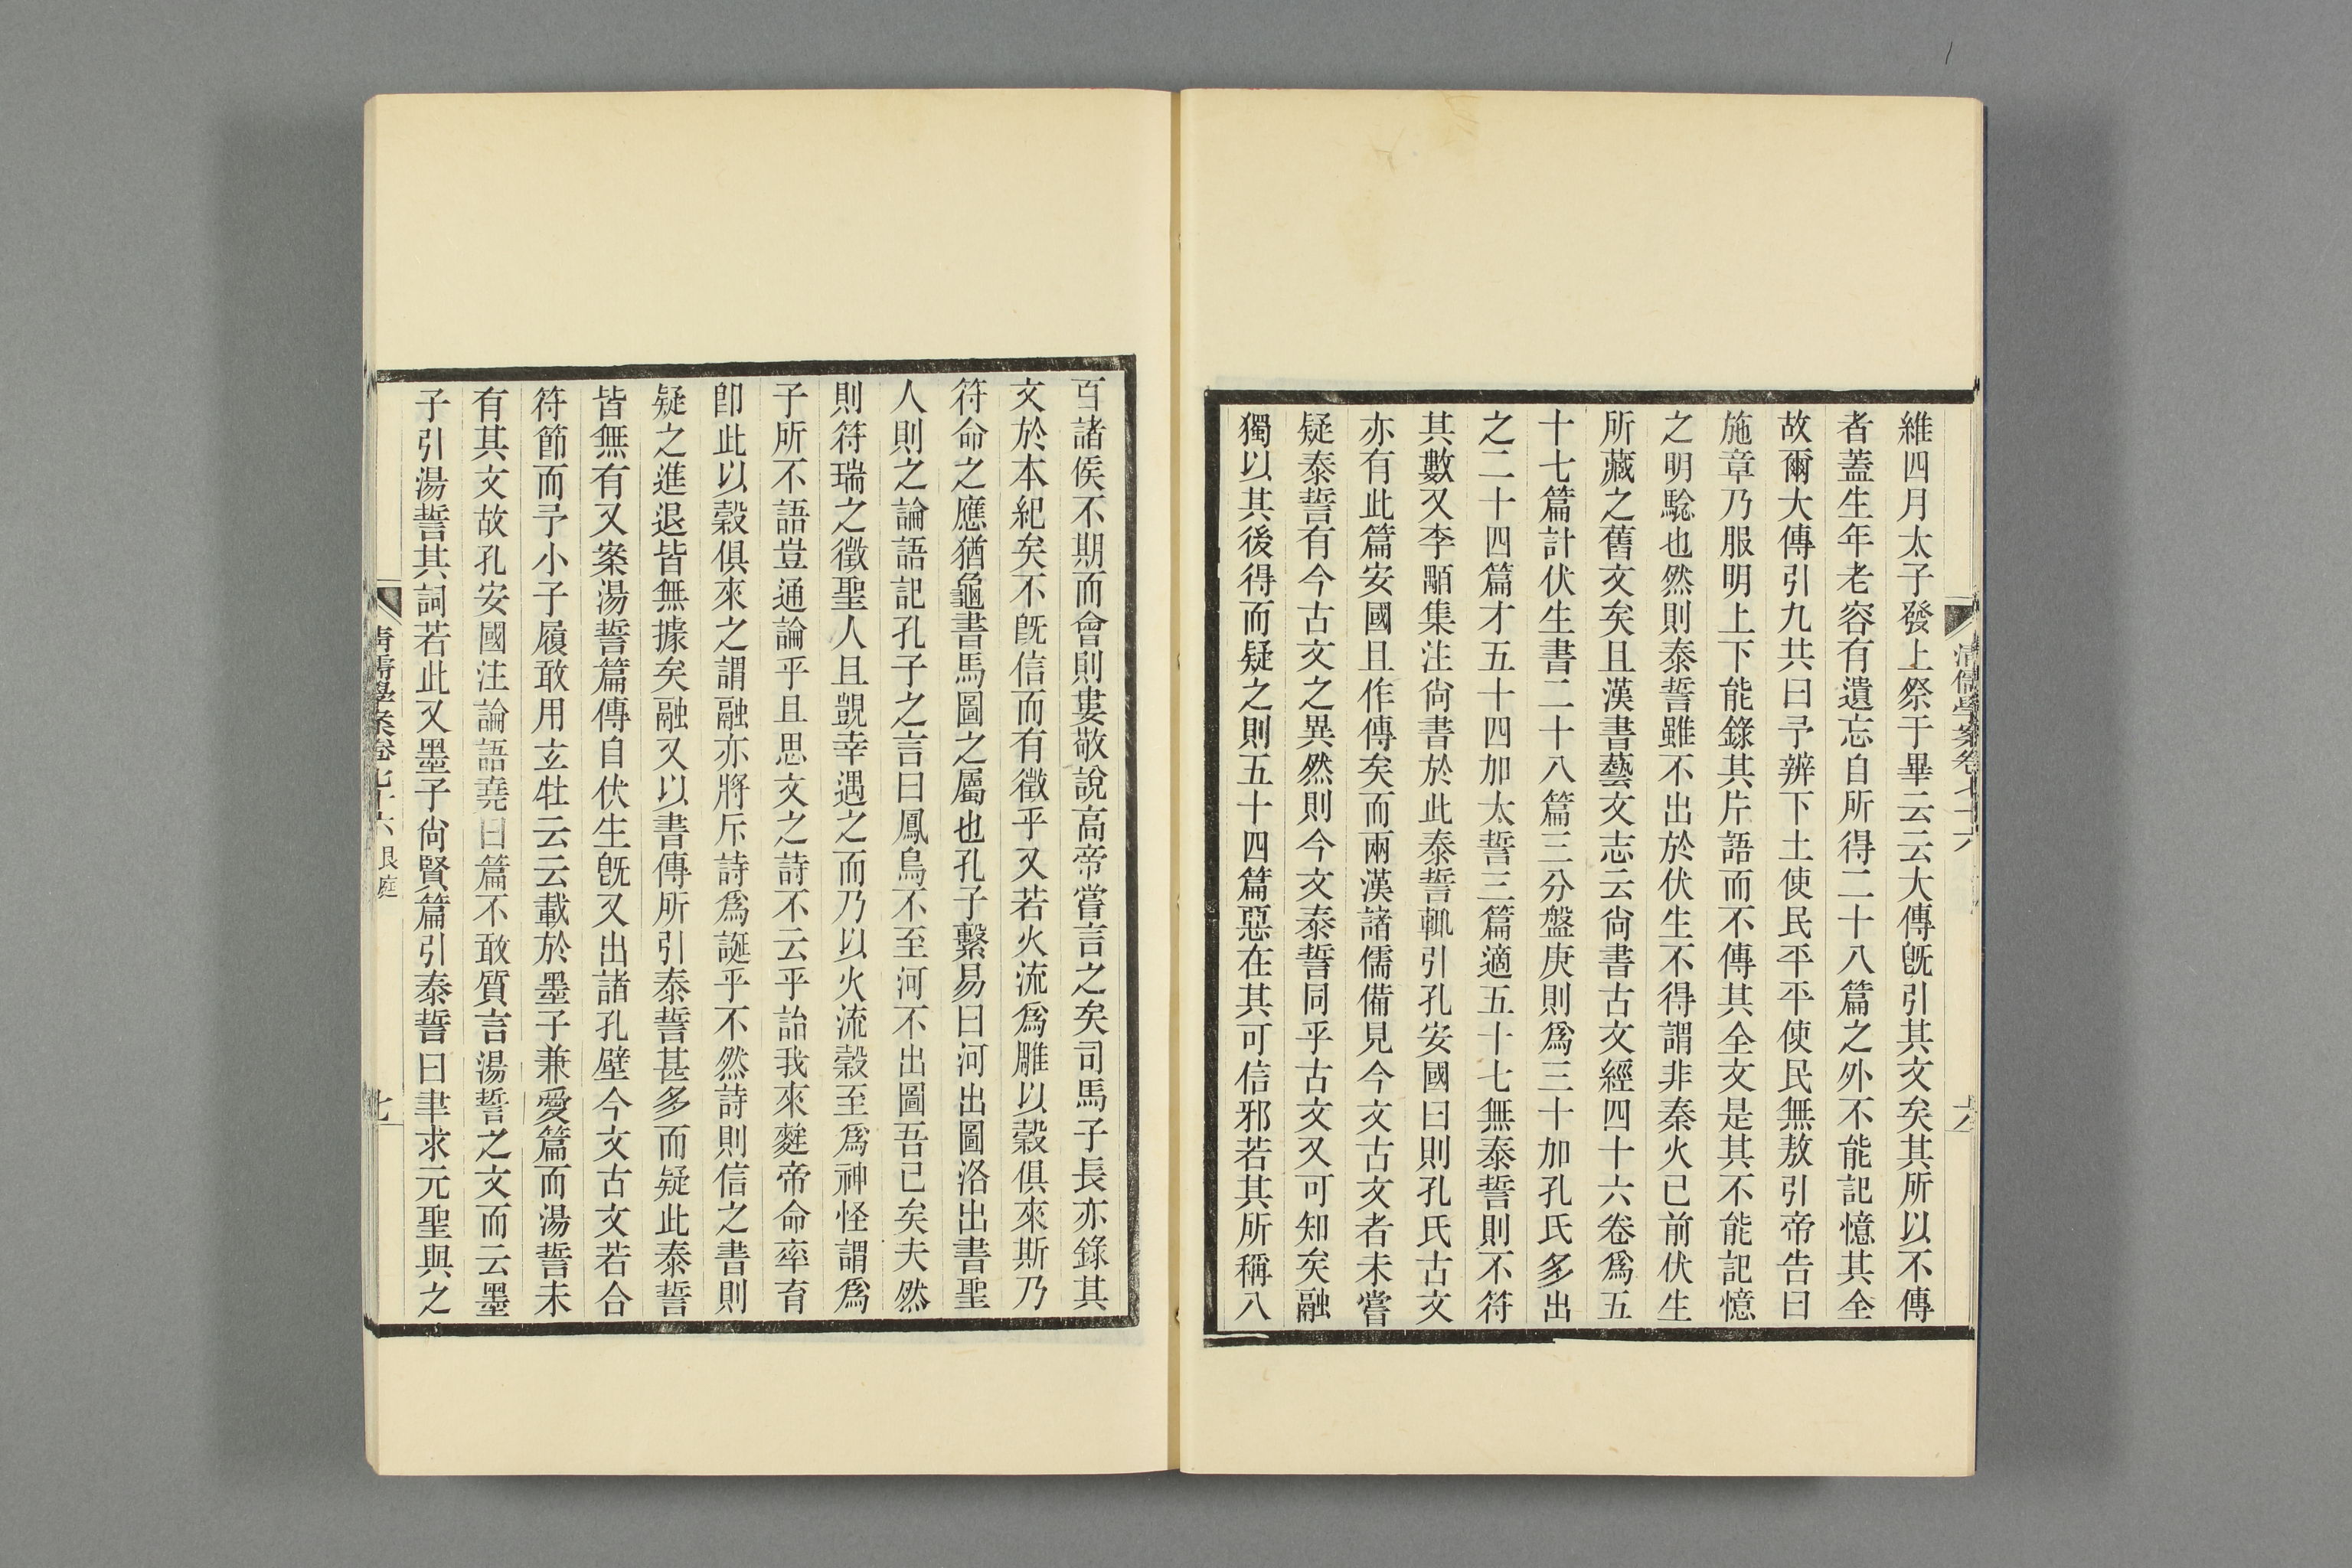 維四月太子發上祭于畢云云大傳旣引其文矣其所以不傳
者蓋生年老容有遺忘自所得二十八篇之外不能記憶其全
故爾大傳引九共曰予辨下土使民平平使民無敖引帝告曰
施章乃服明上下能錄其片語而不傳其全文是其不能記憶
之明騐也然則泰誓雖不出於伏生不得謂非秦火已前伏生
所藏之舊文矣且漢書藝文志云尙書古文經四十六卷爲五
十七篇計伏生書二十八篇三分盤庚則爲三十加孔氏多出
之二十四篇才五十四加太誓三篇適五十七無泰誓則不符
其數又李顒集注尙書於此泰誓輒引孔安國曰則孔氏古文
亦有此篇安國且作傳矣而兩漢諸儒備見今文古文者未嘗
疑泰誓有今古文之異然則今文泰誓同乎古文又可知矣融
獨以其後得而疑之則五十四篇惡在其可信邪若其所稱八
百諸侯不期而會則婁敬說高帝嘗言之矣司馬子長亦錄其
文於本紀矣不旣信而有徵乎又若火流爲雕以穀俱來斯乃
符命之應猶龜書馬圖之屬也孔子繫易曰河出圖洛出書聖
人則之論語記孔子之言曰鳳鳥不至河不出圖吾已矣夫然
則符瑞之徵聖人且覬幸遇之而乃以火流穀至爲神怪謂爲
子所不語豈通論乎且思文之詩不云乎詒我來麰帝命率育
卽此以穀俱來之謂融亦將斥詩爲誕乎不然詩則信之書則
疑之進退皆無據矣融又以書傳所引泰誓甚多而疑此泰誓
皆無有又案湯誓篇傳自伏生旣又出諸孔壁今文古文若合
符節而予小子履敢用玄牡云云載於墨子兼愛篇而湯誓未
有其文故孔安國注論語堯曰篇不敢質言湯誓之文而云墨
子引湯誓其詞若此又墨子尙賢篇引泰誓曰聿求元聖與之
清儒學案卷七十六 艮庭
七